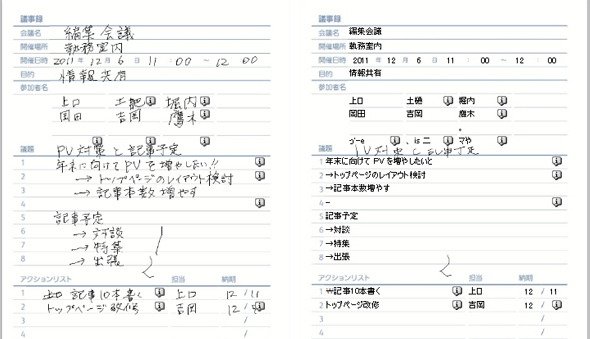 議事録
会議名 編集会議
開催場所 執務室内
開催日時 2011 年 12 月 6 日 11 : 00 ～ 12 00
目的 情報共有
参加者名
上口 土肥 堀内
岡田 吉岡 鷹木
議題 PV対策と記事予定
1 年末に向けてPVを増やしたい!!
2 →トップページのレイアウト検討
3 →記事本数増やす
4
5 記事予定
6 →対談
7 →特集
8 →出張
アクションリスト 担当 納期
1 記事10本書く 上口 12 / 11
2 トップページ改修 吉岡 12 /
3 /
4 /
議事録
会議名 編集会議
開催場所 執務室内
開催日時 2011 年 12 月 6 日 11 : 00 ～ 12 : 00
目的 情報共有
参加者名
上口 土樋 堀内
岡田 吉岡 鷹木
議題 PV対策と記事予定
1 年末に向けて PVを増やしたいと
2 →トップページのレイアウト検討
3 →記事本数増やす
4 –
5 記事予定
6 →対談
7 →特集
8 →出張
アクションリスト 担当 納期
1 記事10本書く 上口 12 / 11
2 トップページ改修 吉岡 12 /
3 /
4 /